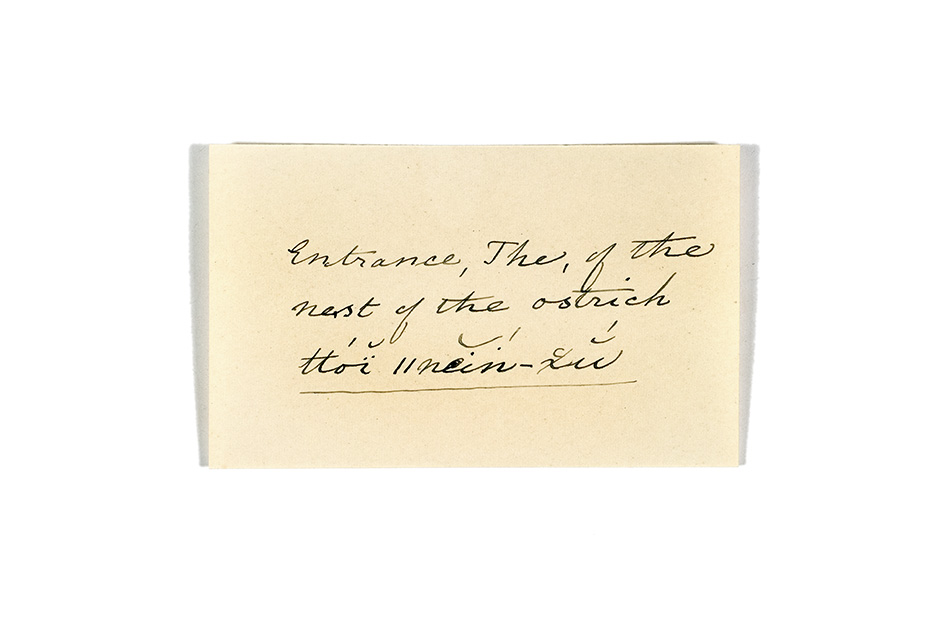 Entrance, The, of the
nest of the ostrich
ttóï̆ ǁnĕĭń-t̤ŭ́